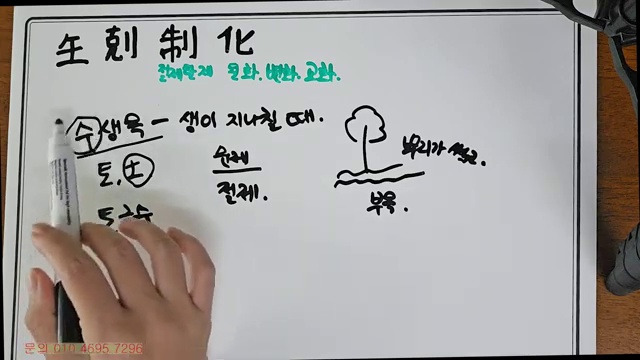 生剋制化
절제 억제 동화. 변화. 교화.
수생목 - 생이 지나칠 때.
토. 土
억제
절제.
뿌리가 썩고.
부목.
토극수
문의 010 4695 7296